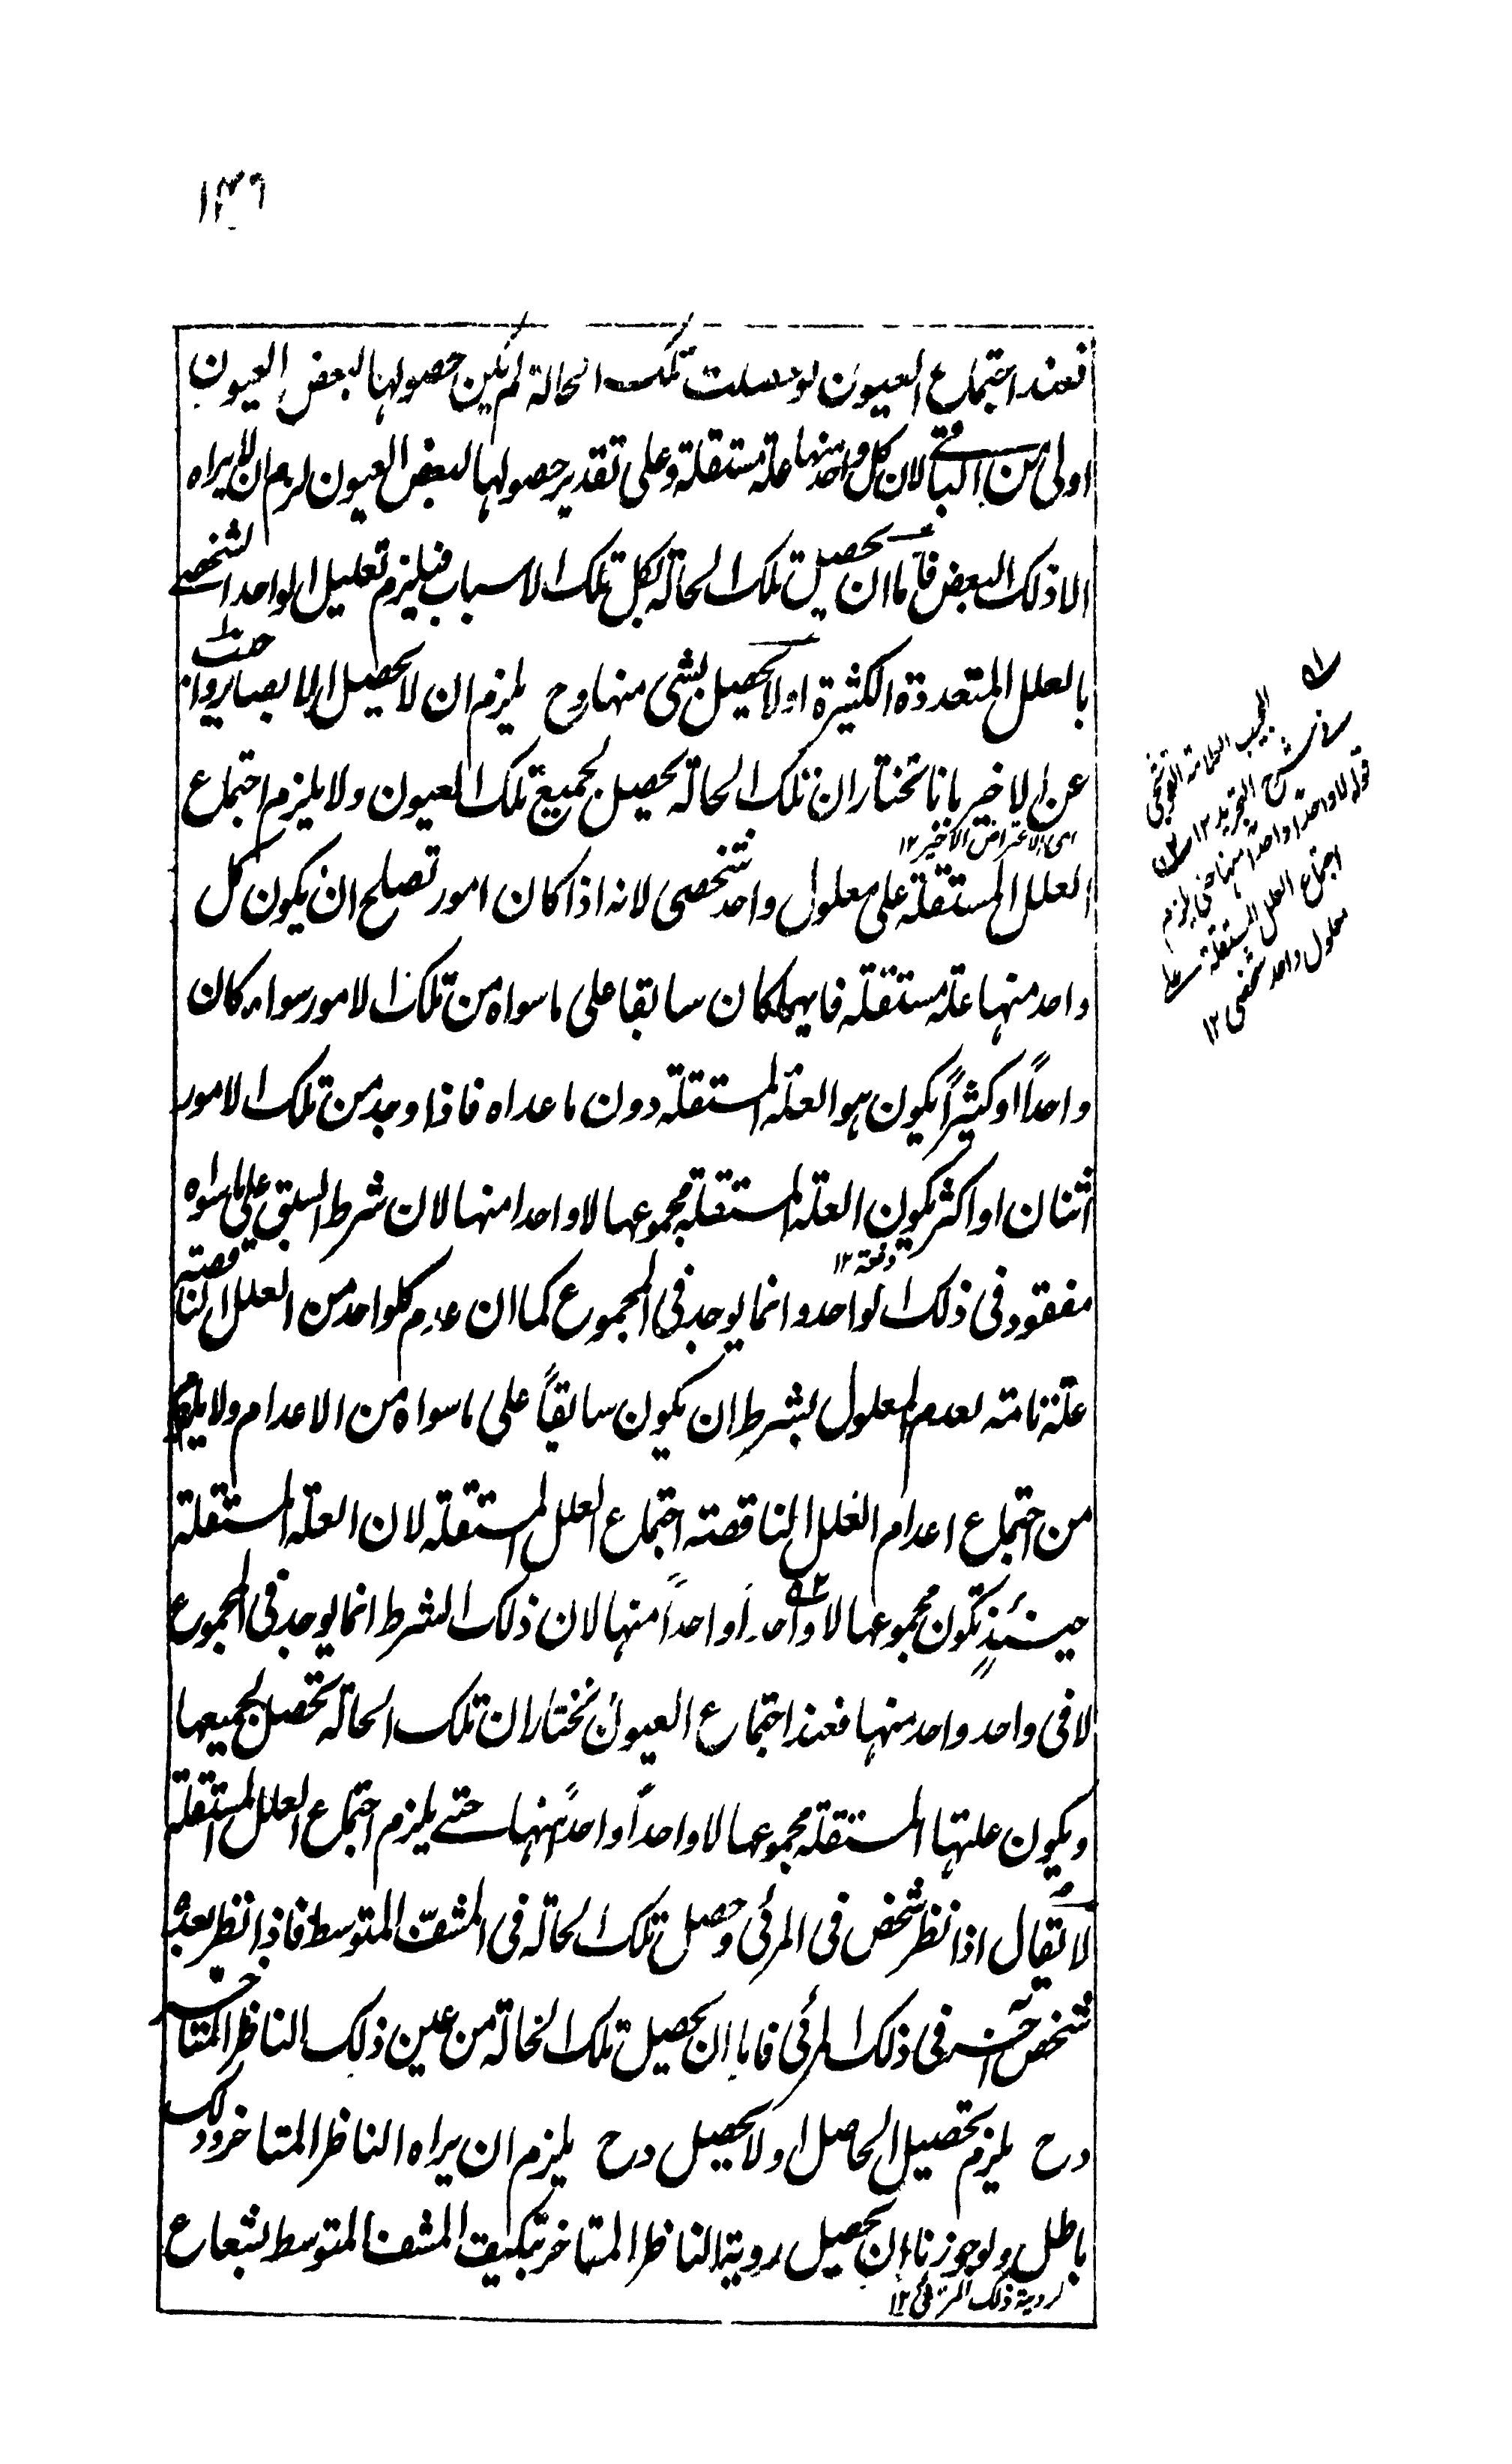 ١٣٦
فعند اجتماع العيون لو حصلت تلك الحالة لم يكن حصولها لبعض العيون
اولى من الباقى لان كل واحد منها علة مستقلة وعلى تقدير حصولها لبعض العيون لزم ان لا يراه
الا ذلك البعض فاما ان يحصل تلك الحالة بكل تلك الاسباب فيلزم تعليل الواحد الشخصى
بالعلل المتعددة الكثيرة او لا يحصل بشى منها وح يلزم ان لا يحصل الابصار
عن الاخير بانا نختار ان تلك الحالة يحصل بجميع تلك العيون ولا يلزم اجتماع
اى الاعتراض الاخير ١٢
العلل المستقلة على معلول واحد شخصى لانه اذا كان امور تصلح ان يكون كل
واحد منها علة مستقلة فايهما كان سابقا على ما سواه من تلك الامور سواء كان
واحداً او كثيراً يكون هو العلة المستقلة دون ما عداه فاذا وجد من تلك الامور
اثنان او اكثر يكون العلة المستقلة مجموعها لا واحدا منها لان شرط السبق على ما سواه
دفعة ١٢
مفقود فى ذلك الواحد وانما يوجد فى المجموع كما ان عدم كلواحد من العلل الناقصة
علة تامة لعدم المعلول بشرط ان يكون سابقاً على ما سواه من الاعدام ولا يلزم
من اجتماع اعدام العلل الناقصة اجتماع العلل المستقلة لان العلة المستقلة
حينئذٍ تكون مجموعها لا واحداً واحداً منها لان ذلك الشرط انما يوجد فى المجموع
لا فى واحد واحد منها فعند اجتماع العيون نختار ان تلك الحالة تحصل بجميعها
ويكون علتها المستقلة مجموعها لا واحداً واحداً منها حتى يلزم اجتماع العلل المستقلة
لا يقال اذا نظر شخص فى المرئى وحصل تلك الحالة فى المشف المتوسط فاذا نظر بعده
شخص آخر فى ذلك المرئى فاما ان يحصل تلك الحالة من عين ذلك الناظر المتاخر
وح يلزم تحصيل الحاصل او لا يحصل وح يلزم ان يراه الناظر المتاخر وذلك
باطل ولو جوزنا ان يحصل روية الناظر المتاخر بتكيف المشف المتوسط بشعاع
لروية ذلك المرئى ١٢
المجيب العلامة القوشجى
فى شرح التجريد ١٢
قوله لا واحدا واحدا منها حتى يلزم
اجتماع العلل المستقلة على
معلول واحد شخصى ١٢